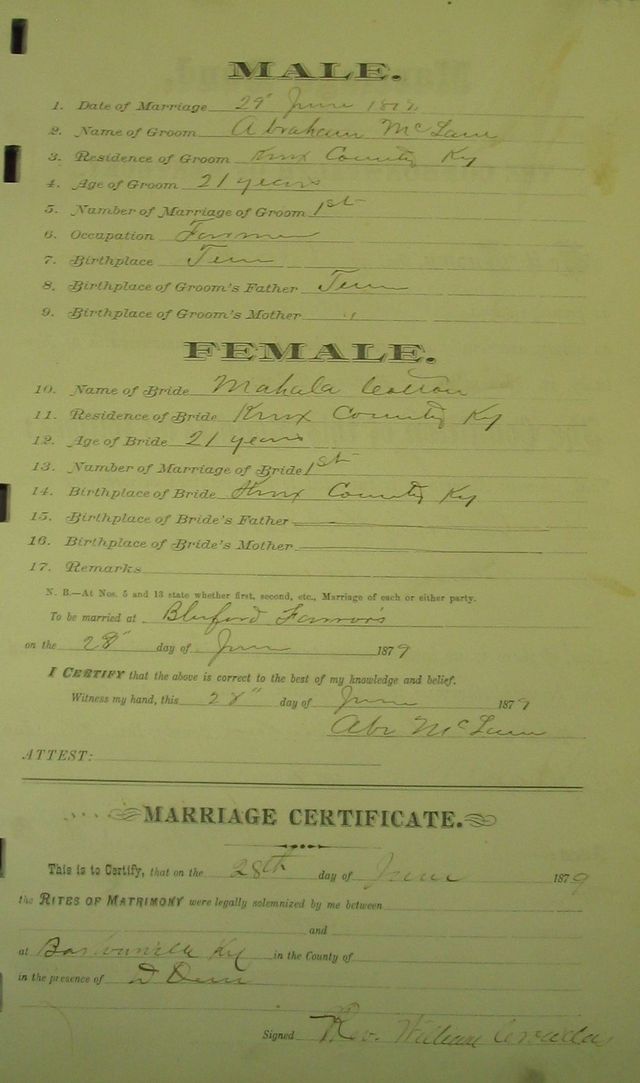 MALE.
1. Date of Marriage 29" June 1879
2. Name of Groom Abraham McLane
3. Residence of Groom Knox County Ky
4. Age of Groom 21 years
5. Number of Marriage of Groom 1st
6. Occupation Farmer
7. Birthplace Tenn
8. Birthplace of Groom's Father Tenn
9. Birthplace of Groom's Mother "
FEMALE.
10. Name of Bride Mahala Cotton
11. Residence of Bride Knox County Ky
12. Age of Bride 21 years
13. Number of Marriage of Bride 1st
14. Birthplace of Bride Knox County Ky
15. Birthplace of Bride's Father
16. Birthplace of Bride's Mother
17. Remarks
N. B.—At Nos. 5 and 13 state whether first, second, etc., Marriage of each or either party.
To be married at Bluford
on the 28" day of June 1879
I CERTIFY that the above is correct to the best of my knowledge and belief.
Witness my hand, this 28" day of June 1879
Abr McLane
ATTEST:
MARRIAGE CERTIFICATE.
This is to Certify, that on the 28th day of June 1879
the RITES OF MATRIMONY were legally solemnized by me between
and
at Barbourville Ky in the County of
in the presence of D
Signed Rev. William